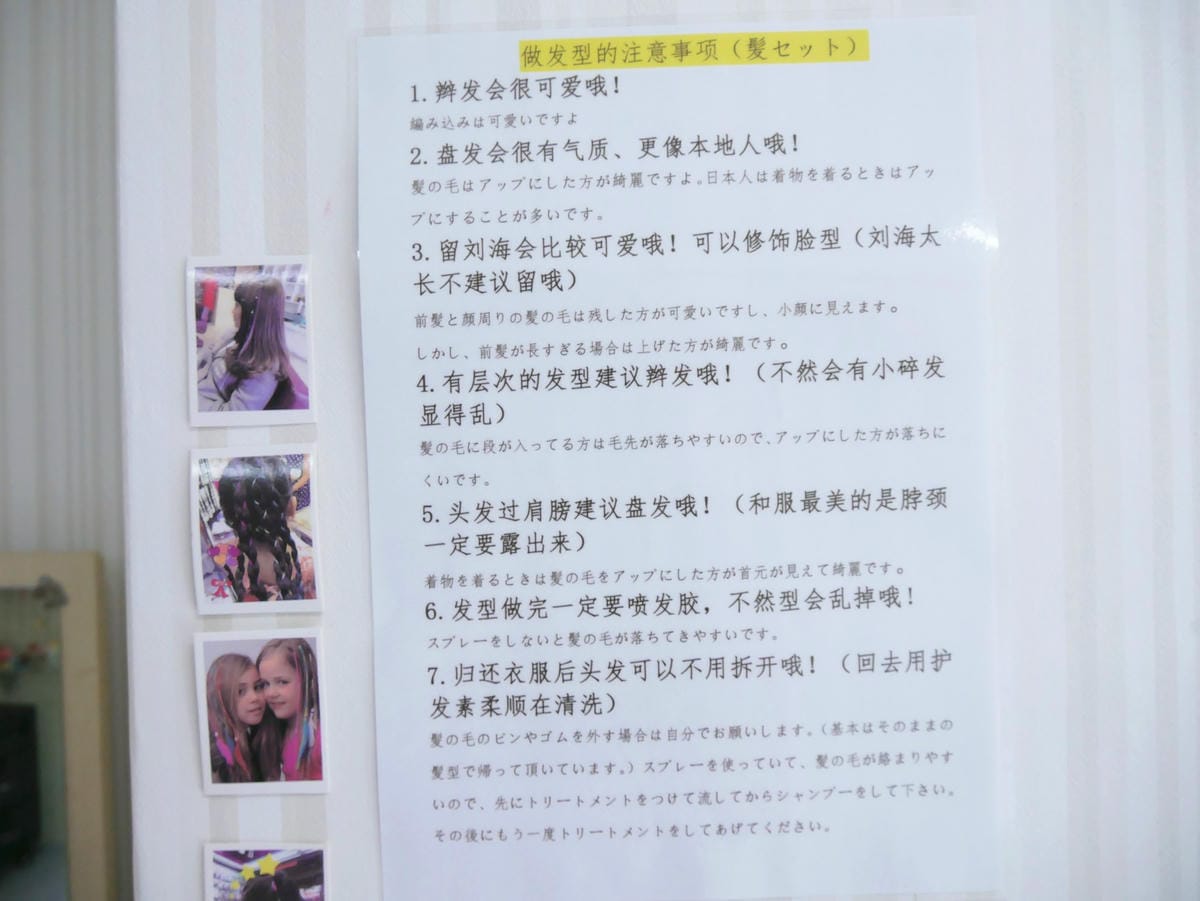 做发型的注意事项（髪セット）
1.辫发会很可爱哦！
編み込みは可愛いですよ
2.盘发会很有气质、更像本地人哦！
髪の毛はアップにした方が綺麗ですよ。日本人は着物を着るときはアッ
プにすることが多いです。
3.留刘海会比较可爱哦！可以修饰脸型（刘海太
长不建议留哦）
前髪と顔周りの髪の毛は残した方が可愛いですし、小顔に見えます。
しかし、前髪が長すぎる場合は上げた方が綺麗です。
4.有层次的发型建议辫发哦！（不然会有小碎发
显得乱）
髪の毛に段が入ってる方は毛先が落ちやすいので、アップにした方が落ちに
くいです。
5.头发过肩膀建议盘发哦！（和服最美的是脖颈
一定要露出来）
着物を着るときは髪の毛をアップにした方が首元が見えて綺麗です。
6.发型做完一定要喷发胶，不然型会乱掉哦！
スプレーをしないと髪の毛が落ちてきやすいです。
7.归还衣服后头发可以不用拆开哦！（回去用护
发素柔顺在清洗）
髪の毛のピンやゴムを外す場合は自分でお願いします。（基本はそのままの
髪型で帰って頂いています。）スプレーを使っていて、髪の毛が絡まりやす
いので、先にトリートメントをつけて流してからシャンプーをして下さい。
その後にもう一度トリートメントをしてあげてください。